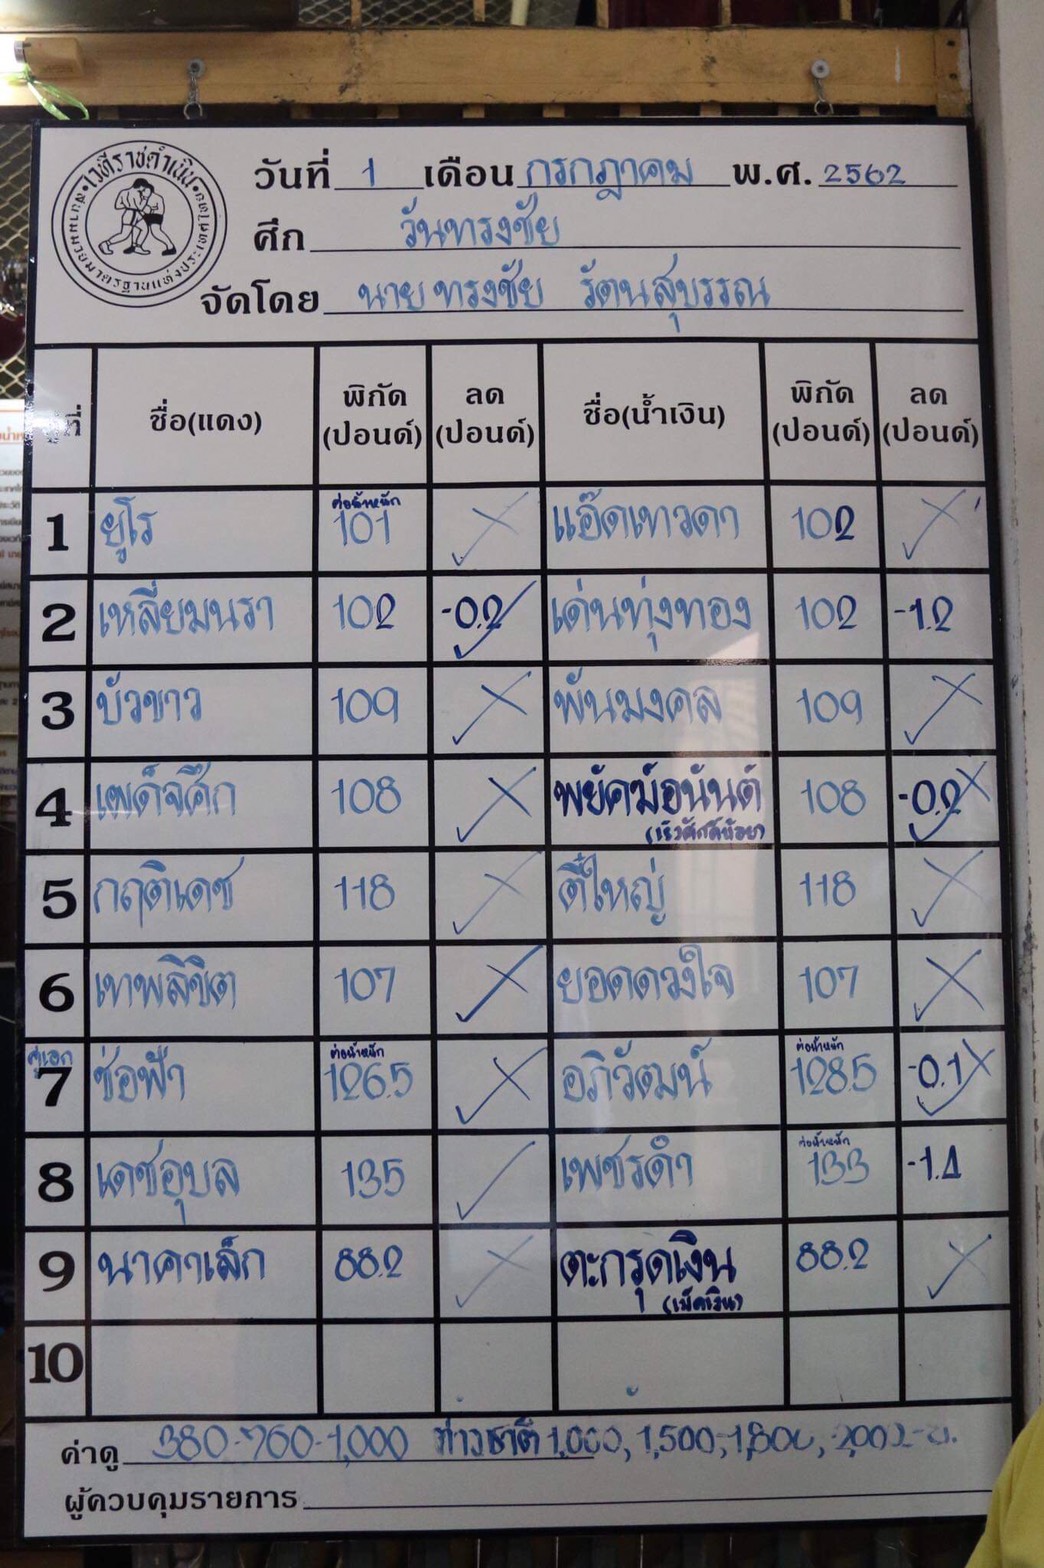 วันที่ 1 เดือน กรกฎาคม พ.ศ. 2562
ศึก วันทรงชัย
จัดโดย นายทรงชัย รัตนสุบรรณ
ที่ ชื่อ(แดง) พิกัด (ปอนด์) ลด (ปอนด์) ชื่อ(น้ำเงิน) พิกัด (ปอนด์) ลด (ปอนด์)
1 ยูโร ต่อน้ำหนัก 101 แอ๊ดเทวดา 102
2 เหลี่ยมนรา 102 -0.2 เด่นทุ่งทอง 102 -1.2
3 บัวขาว 109 พันมงคล 109
4 เพด็จศึก 108 พยัคฆ์อนันต์ 108 -0.2
5 กฤติเดช 118 ตี๋ใหญ่ 118
6 เทพลิขิต 107 ยอดดวงใจ 107
คู่เอก 7 ช่อฟ้า ต่อน้ำหนัก 126.5 อภิวัฒน์ ต่อน้ำหนัก 128.5 -0.1
8 เดชอุบล 135 เพชรดำ ต่อน้ำหนัก 133 -1.4
9 นาคาเล็ก 88.2 ตะกรุดเงิน 88.2
10
ค่าดู 380-760-1,000 ชาวชาติ 1,000, 1,500,-1,800, 2,002
ผู้ควบคุมรายการ